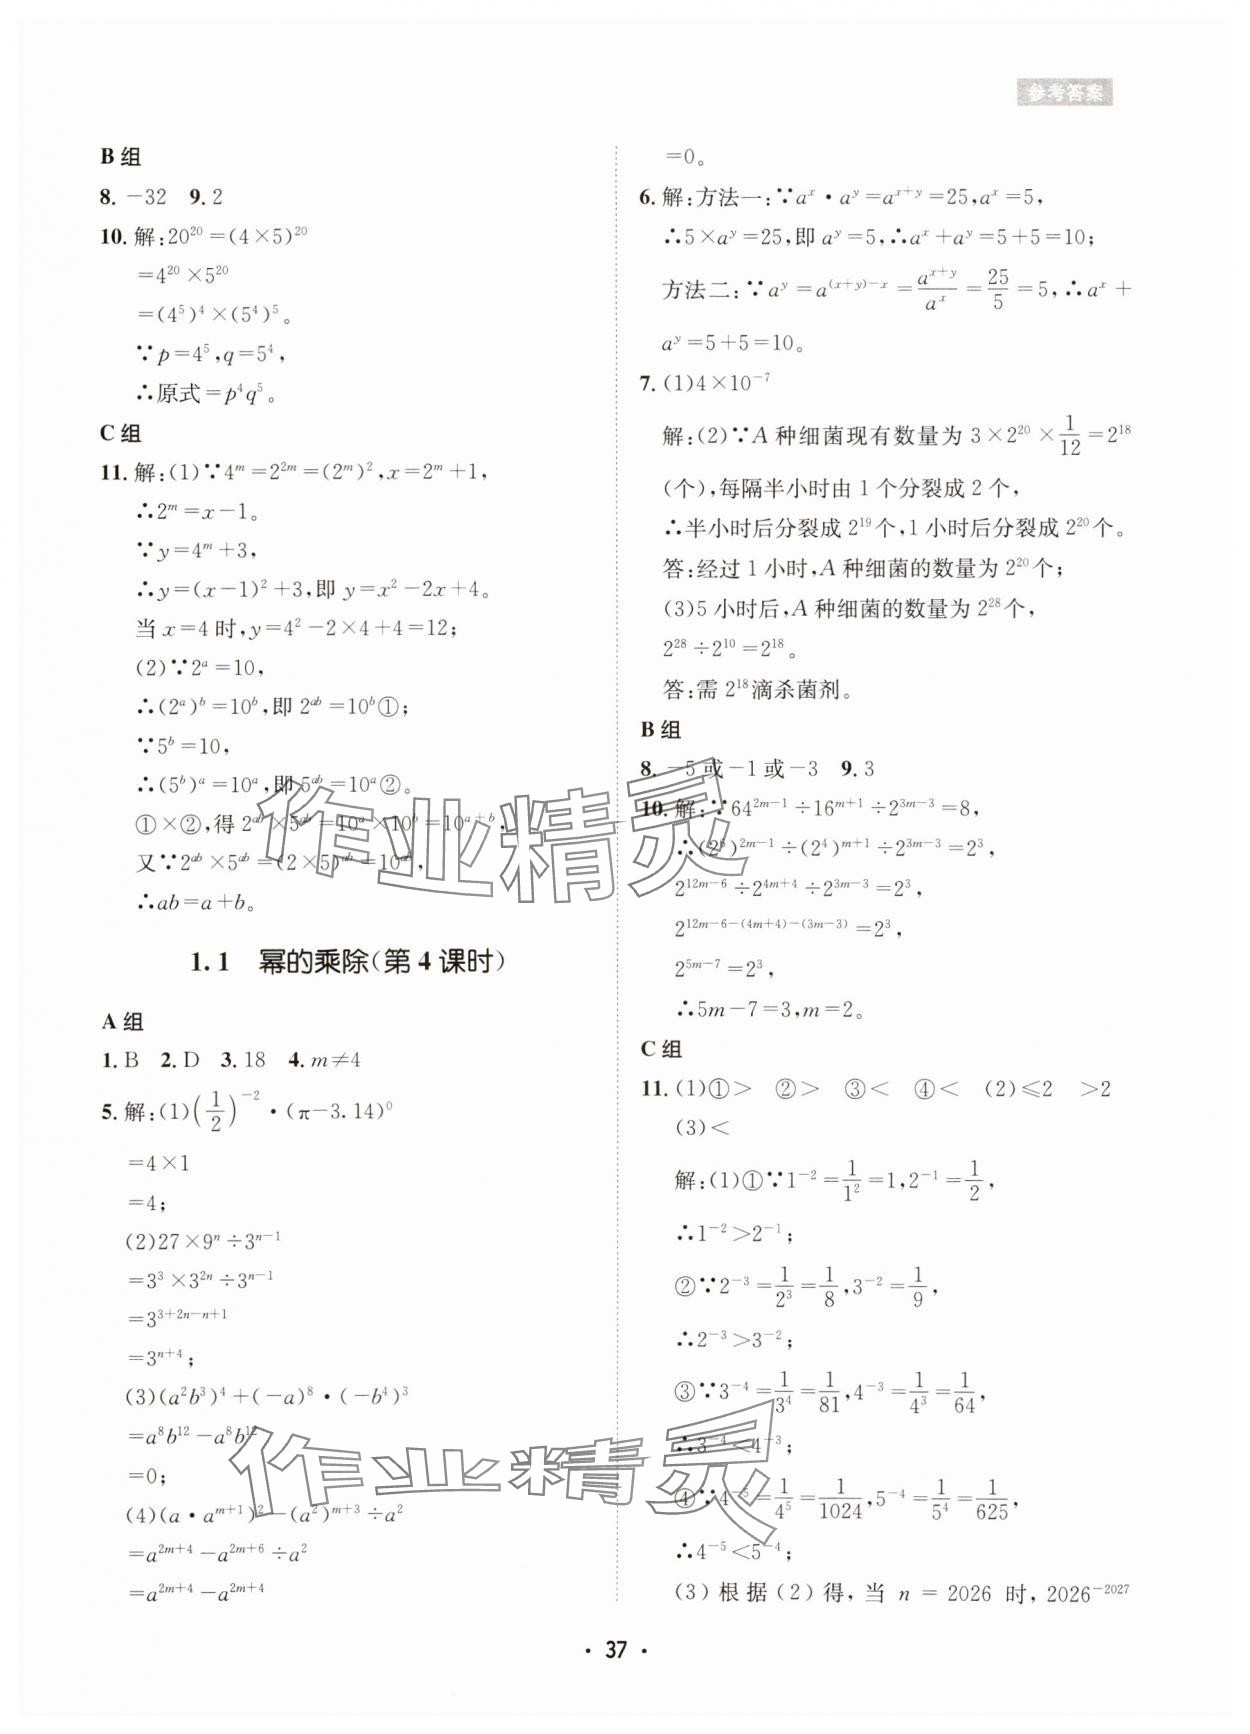 参考答案
B 组
8. －32  9. 2
10. 解：20²⁰＝(4×5)²⁰
＝4²⁰×5²⁰
＝(4⁵)⁴×(5⁴)⁵。
∵p＝4⁵,q＝5⁴,
∴原式＝p⁴q⁵。
C 组
11. 解：(1)∵4^m＝2^{2m}＝(2^m)²,x＝2^m＋1,
∴2^m＝x－1。
∵y＝4^m＋3,
∴y＝(x－1)²＋3,即 y＝x²－2x＋4。
当 x＝4 时,y＝4²－2×4＋4＝12;
(2)∵2^a＝10,
∴(2^a)^b＝10^b,即 2^{ab}＝10^b①;
∵5^b＝10,
∴(5^b)^a＝10^a,即 5^{ab}＝10^a②。
①×②,得 2^{ab}×5^{ab}＝10^a×10^b＝10^{a＋b},
又∵2^{ab}×5^{ab}＝(2×5)^{ab}＝10^{ab},
∴ab＝a＋b。
1.1 幂的乘除(第 4 课时)
A 组
1. B  2. D  3. 18  4. m≠4
5. 解：(1)(1/2)^{－2}·(π－3.14)⁰
＝4×1
＝4;
(2)27×9^n÷3^{n－1}
＝3³×3^{2n}÷3^{n－1}
＝3^{3＋2n－n＋1}
＝3^{n＋4};
(3)(a²b³)⁴＋(－a)⁸·(－b⁴)³
＝a⁸b¹²－a⁸b¹²
＝0;
(4)(a·a^{m＋1})²－(a²)^{m＋3}÷a²
＝a^{2m＋4}－a^{2m＋6}÷a²
＝a^{2m＋4}－a^{2m＋4}
＝0。
6. 解：方法一：∵a^x·a^y＝a^{x＋y}＝25,a^x＝5,
∴5×a^y＝25,即 a^y＝5,∴a^x＋a^y＝5＋5＝10;
方法二：∵a^y＝a^{(x＋y)－x}＝a^{x＋y}/a^x＝25/5＝5,∴a^x＋
a^y＝5＋5＝10。
7. (1)4×10^{－7}
解：(2)∵A 种细菌现有数量为 3×2²⁰×1/12＝2¹⁸
(个),每隔半小时由 1 个分裂成 2 个,
∴半小时后分裂成 2¹⁹个,1 小时后分裂成 2²⁰个。
答：经过 1 小时,A 种细菌的数量为 2²⁰个;
(3)5 小时后,A 种细菌的数量为 2²⁸个,
2²⁸÷2¹⁰＝2¹⁸。
答：需 2¹⁸滴杀菌剂。
B 组
8. －5 或－1 或－3  9. 3
10. 解：∵64^{2m－1}÷16^{m＋1}÷2^{3m－3}＝8,
∴(2⁶)^{2m－1}÷(2⁴)^{m＋1}÷2^{3m－3}＝2³,
2^{12m－6}÷2^{4m＋4}÷2^{3m－3}＝2³,
2^{12m－6－(4m＋4)－(3m－3)}＝2³,
2^{5m－7}＝2³,
∴5m－7＝3,m＝2。
C 组
11. (1)①＞  ②＞  ③＜  ④＜  (2)≤2  ＞2
(3)＜
解：(1)①∵1^{－2}＝1/1²＝1,2^{－1}＝1/2,
∴1^{－2}＞2^{－1};
②∵2^{－3}＝1/2³＝1/8,3^{－2}＝1/9,
∴2^{－3}＞3^{－2};
③∵3^{－4}＝1/3⁴＝1/81,4^{－3}＝1/4³＝1/64,
∴3^{－4}＜4^{－3};
④∵4^{－5}＝1/4⁵＝1/1024,5^{－4}＝1/5⁴＝1/625,
∴4^{－5}＜5^{－4};
(3)根据(2)得,当 n＝2026 时,2026^{－2027}
· 37 ·
作业精灵
作业精灵